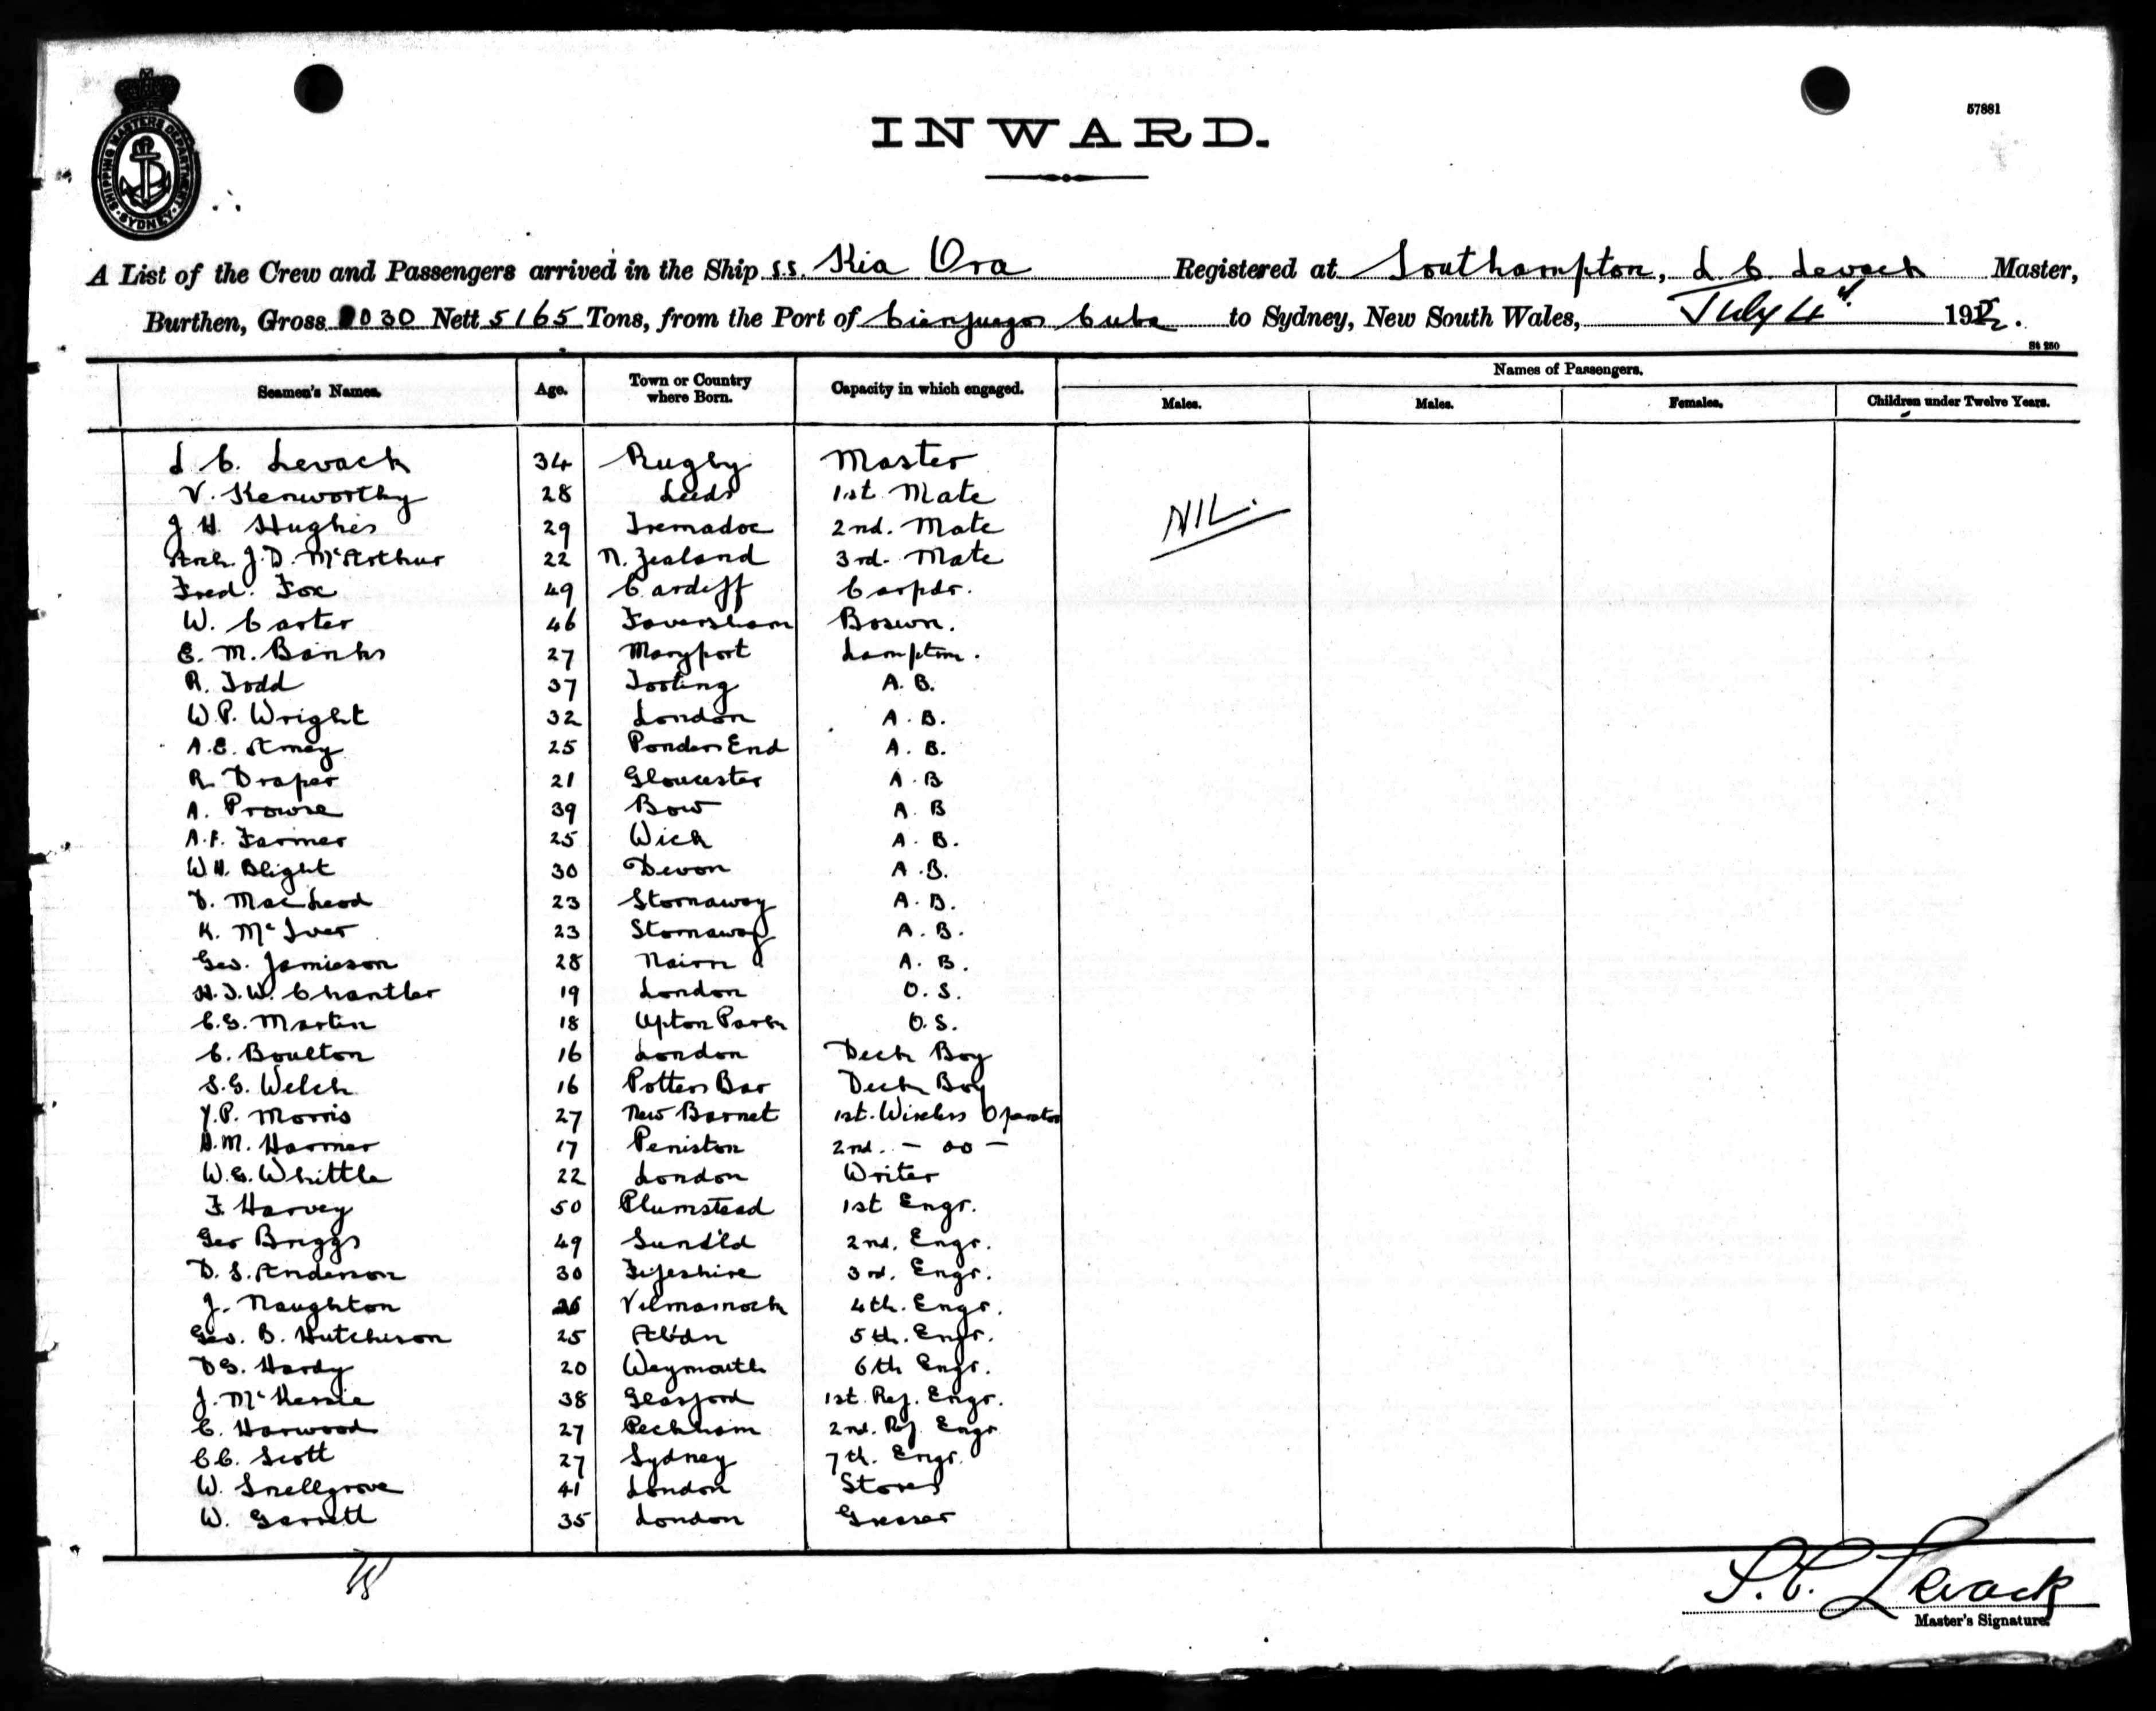 SHIPPING MASTERS DEPARTMENT SYDNEY
57881
INWARD.
A List of the Crew and Passengers arrived in the Ship s.s. Kia Ora Registered at Southampton, Master,
Burthen, Gross 8030 Nett 5165 Tons, from the Port of Cienfuegos Cuba to Sydney, New South Wales, July 4th 192.
St 250
Seamen's Names. Age. Town or Country where Born. Capacity in which engaged. Names of Passengers.
Males. Males. Females. Children under Twelve Years.
L C. Levack 34 Rugby Master
V. Kenworthy 28 Leeds 1st. Mate
NIL.
J H. Hughes 29 Tremadoc 2nd. Mate
Arch. J. D. McArthur 22 N. Zealand 3rd. Mate
Fred. Fox 49 Cardiff Carptr.
W. Carter 46 Faversham Boswn.
E. M. Banks 27 Maryport Lamptm.
R. Todd 37 Tooting A. B.
W. P. Wright 32 London A. B.
A. E. 25 Ponders End A. B.
R Draper 21 Gloucester A. B
A. Prowse 39 Bow A. B
A. F. Farmer 25 Wick A. B.
W H. Blight 30 Devon A. B.
D. MacLeod 23 Stornaway A. B.
K. McIver 23 Stornaway A. B.
Geo. Jamieson 28 Nairn A. B.
H. J. W. Chantler 19 London O. S.
C. G. Martin 18 Upton Park O. S.
C. Boulton 16 London Deck Boy
S. G. Welch 16 Potters Bar Deck Boy
Y. P. Morris 27 New Barnet 1st. Wireless Operator
H. M. Harmer 17 Peniston 2nd. - do -
W. G. Whittle 22 London Writer
F. Harvey 50 Plumstead 1st Engr.
Geo Briggs 49 Sund'ld 2nd. Engr.
D. S. Anderson 30 Fifeshire 3rd. Engr.
J. Naughton 26 4th. Engr.
Geo. B. Hutcheson 25 Ab'dn 5th. Engr.
D G. Hardy 20 Weymouth 6th Engr.
J. 38 Glasford 1st. Ref. Engr.
C. Harwood 27 Peckham 2nd. Ref. Engr
C C. Scott 27 Sydney 7th. Engr.
W. Snellgrove 41 London Stores
W. Garrett 35 London Greaser
L. C. Levack
Master's Signature.